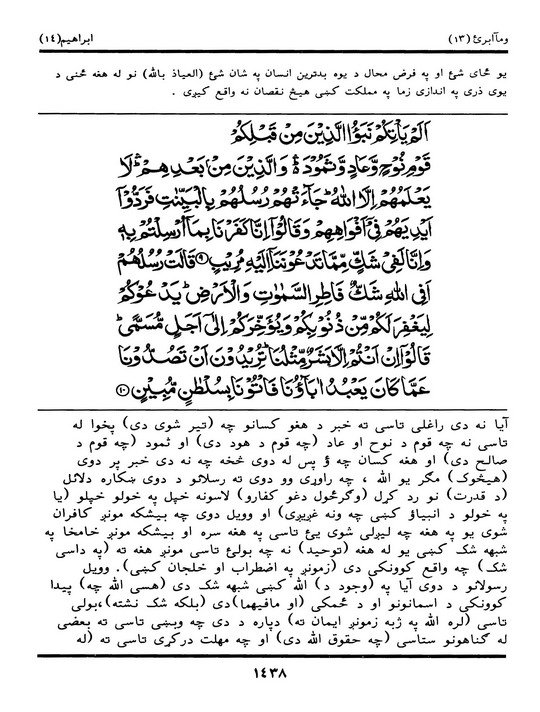 ومآابرئ (١٣)
ابراهیم (١٤)
یو ځای شئ او په فرض محال د یوه بدترین انسان په شان شئ (العیاذ بالله) نو له هغه ځنی د
یوی ذری په اندازی زما په مملکت کښی هیڅ نقصان نه واقع کیږی .
اَلَمْ يَاْتِكُمْ نَبَؤُا الَّذِيْنَ مِنْ قَبْلِكُمْ
قَوْمِ نُوْحٍ وَّعَادٍ وَّثَمُوْدَ ۛ وَالَّذِيْنَ مِنْۢ بَعْدِهِمْ ۛ لَا
يَعْلَمُهُمْ اِلَّا اللّٰهُ ؕ جَآءَتْهُمْ رُسُلُهُمْ بِالْبَيِّنٰتِ فَرَدُّوْٓا
اَيْدِيَهُمْ فِيْٓ اَفْوَاهِهِمْ وَقَالُوْٓا اِنَّا كَفَرْنَا بِمَآ اُرْسِلْتُمْ بِهٖ
وَاِنَّا لَفِيْ شَكٍّ مِّمَّا تَدْعُوْنَنَآ اِلَيْهِ مُرِيْبٍ ۹ قَالَتْ رُسُلُهُمْ
اَفِي اللّٰهِ شَكٌّ فَاطِرِ السَّمٰوٰتِ وَالْاَرْضِ ؕ يَدْعُوْكُمْ
لِيَغْفِرَ لَكُمْ مِّنْ ذُنُوْبِكُمْ وَيُؤَخِّرَكُمْ اِلٰٓى اَجَلٍ مُّسَمًّى ؕ
قَالُوْٓا اِنْ اَنْتُمْ اِلَّا بَشَرٌ مِّثْلُنَا ؕ تُرِيْدُوْنَ اَنْ تَصُدُّوْنَا
عَمَّا كَانَ يَعْبُدُ اٰبَآؤُنَا فَاْتُوْنَا بِسُلْطٰنٍ مُّبِيْنٍ ۱۰
آیا نه دی راغلی تاسی ته خبر د هغو کسانو چه (تیر شوی دی) پخوا له
تاسی نه چه قوم د نوح او عاد (چه قوم د هود دی) او ثمود (چه قوم د
صالح دی) او هغه کسان چه ؤ پس له دوی څخه چه نه دی خبر پر دوی
(هیڅوک) مگر یو الله ، چه راوړی وو دوی ته رسلانو د دوی ښکاره دلائل
(د قدرت) نو رد کړل (وگرځول دغو کفارو) لاسونه خپل په خولو خپلو (یا
په خولو د انبیاؤ کښی چه ونه غږیږی) او وویل دوی چه بیشکه مونږ کافران
شوی یو په هغه چه لیږلی شوی یئ تاسی په هغه سره او بیشکه مونږ خامخا په
شبهه شک کښی یو له هغه (توحید) نه چه بولئ تاسی مونږ هغه ته (په داسی
شک) چه واقع کوونکی دی (زمونږ په اضطراب او خلجان کښی). وویل
رسولانو د دوی آیا په (وجود د) الله کښی شبهه شک دی (هسی الله چه) پیدا
کوونکی د اسمانونو او د ځمکی (او مافیهما)دی (بلکه شک نشته)،بولی
تاسی (لره الله په ژبه زمونږ ایمان ته) دپاره د دی چه وبښی تاسی ته بعضی
له گناهونو ستاسی (چه حقوق الله دی) او چه مهلت درکړی تاسی ته (له
١٤٣٨